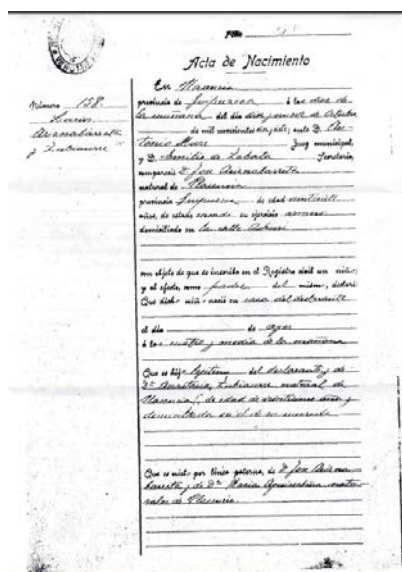 Folio
Acta de Nacimiento
Número 158.
Lucas
Ariznabarreta
y Zubiaurre
En Placencia
provincia de Guipuzcoa á las diez de
la mañana del día diez y nueve de Octubre
de mil novecientos diez y siete, ante D. An-
tonio Juez municipal,
y D. Emilio de Zabala Secretario,
compareció D. Jose Ariznabarreta
natural de Placencia
provincia Guipuzcoa de edad veintisiete
años, de estado casado su ejercicio armero
domiciliado en la calle
con objeto de que se inscriba en el Registro civil un niño;
y al efecto, como padre del mismo, declaró:
Que dicho niño nació en casa del declarante
el día de ayer
á las cuatro y media de la mañana
Que es hijo legítimo del declarante y de
Dª Anastasia Zubiaurre natural de
Placencia, de edad de años y
domiciliada en el de su marido
Que es nieto por línea paterna, de D. Jose Arizna-
barreta y de Dª Maria natu-
rales de Placencia